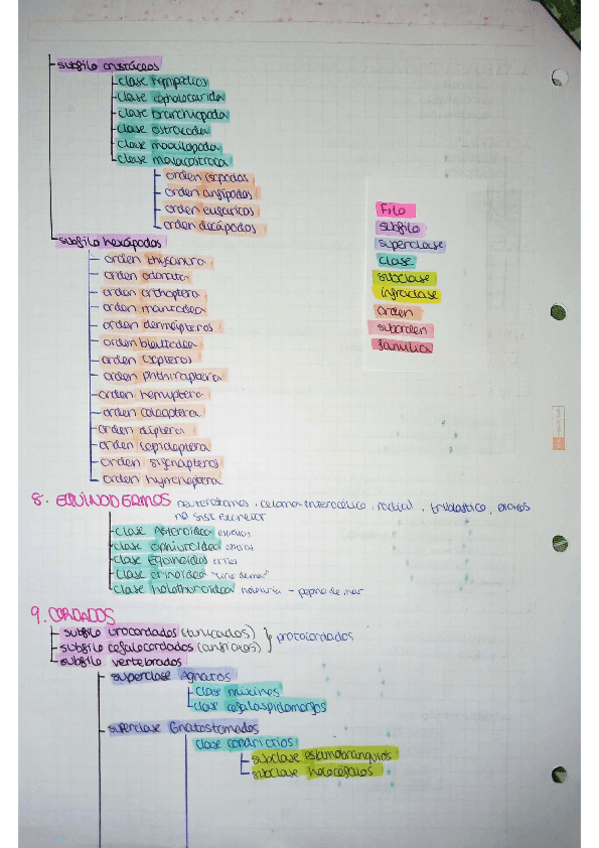 subfilo crustáceos
clase
clase cephalocarida
clase branchiopoda
clase ostracoda
clase maxilopoda
clase malacostraca
orden isópodos
orden anfípodos
orden eufaricos
orden decápodos
subfilo hexápodos
orden thysanura
orden odonata
orden orthoptera
orden mantodea
orden dermápteros
orden blattodea
orden isópteros
orden phthiraptera
orden hemyptera
orden coleoptera
orden diptera
orden lepidoptera
orden sifonapteros
orden hymenoptera
Filo
subfilo
superclase
clase
subclase
infraclase
orden
suborden
familia
8. EQUINODERMOS deuterostomos, celoma enterocélico, radial, triblastico,
no sist excretor
clase Asteroidea estrellas
clase Ophiuroidea ofiuras
clase Equinoidea erizos
clase crinoidea "lirio de mar"
clase holothuroidea holoturia - pepino de mar
9. CORDADOS
subfilo urocordados (tunicados) } protocordados
subfilo cefalocordados (anfioxos)
subfilo vertebrados
superclase Agnatos
clase mixinos
clase cefalaspidomorfos
superclase Gnatostomados
clase condrictios
subclase elasmobranquios
subclase holocéfalos